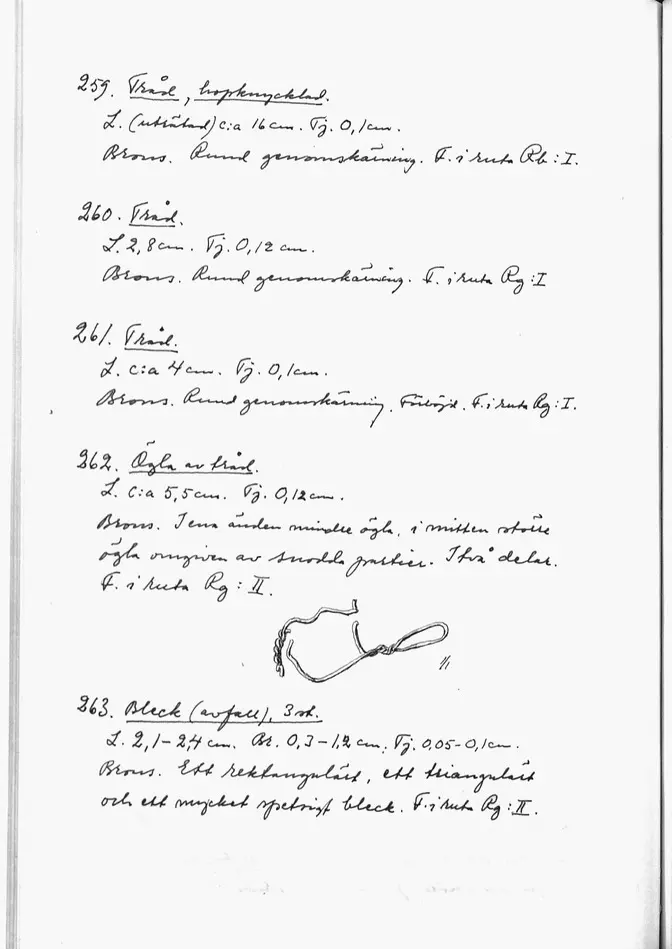 259. Tråd, hopknycklad.
L. (uträtad) c:a 16 cm. Tj. 0,1 cm.
Brons. Rund genomskärning. F. i ruta Rb : I.
260. Tråd.
L. 2,8 cm. Tj. 0,12 cm.
Brons. Rund genomskärning. F. i ruta Rg : I
261. Tråd.
L. c:a 4 cm. Tj. 0,1 cm.
Brons. Rund genomskärning. Förböjd. F. i ruta Rg : I.
262. Ögla av tråd.
L. c:a 5,5 cm. Tj. 0,12 cm.
Brons. I ena änden mindre ögla, i mitten större
ögla omgiven av snodda partier. I två delar.
F. i ruta Rg : II.
1/1
263. Bleck (avfall), 3 st.
L. 2,1-2,4 cm. Br. 0,3-1,2 cm. Tj. 0,05-0,1 cm.
Brons. Ett rektangulärt, ett triangulärt
och ett mycket spetsigt bleck. F. i ruta Rg : II.